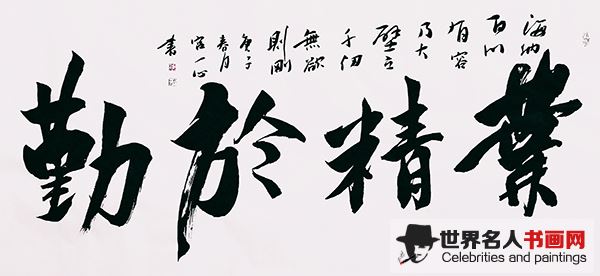 業精於勤
海納
百川
有容
乃大
壁立
千仞
無欲
則剛
庚子
春月
一心
書
世界名人书画网
Celebrities and paintings